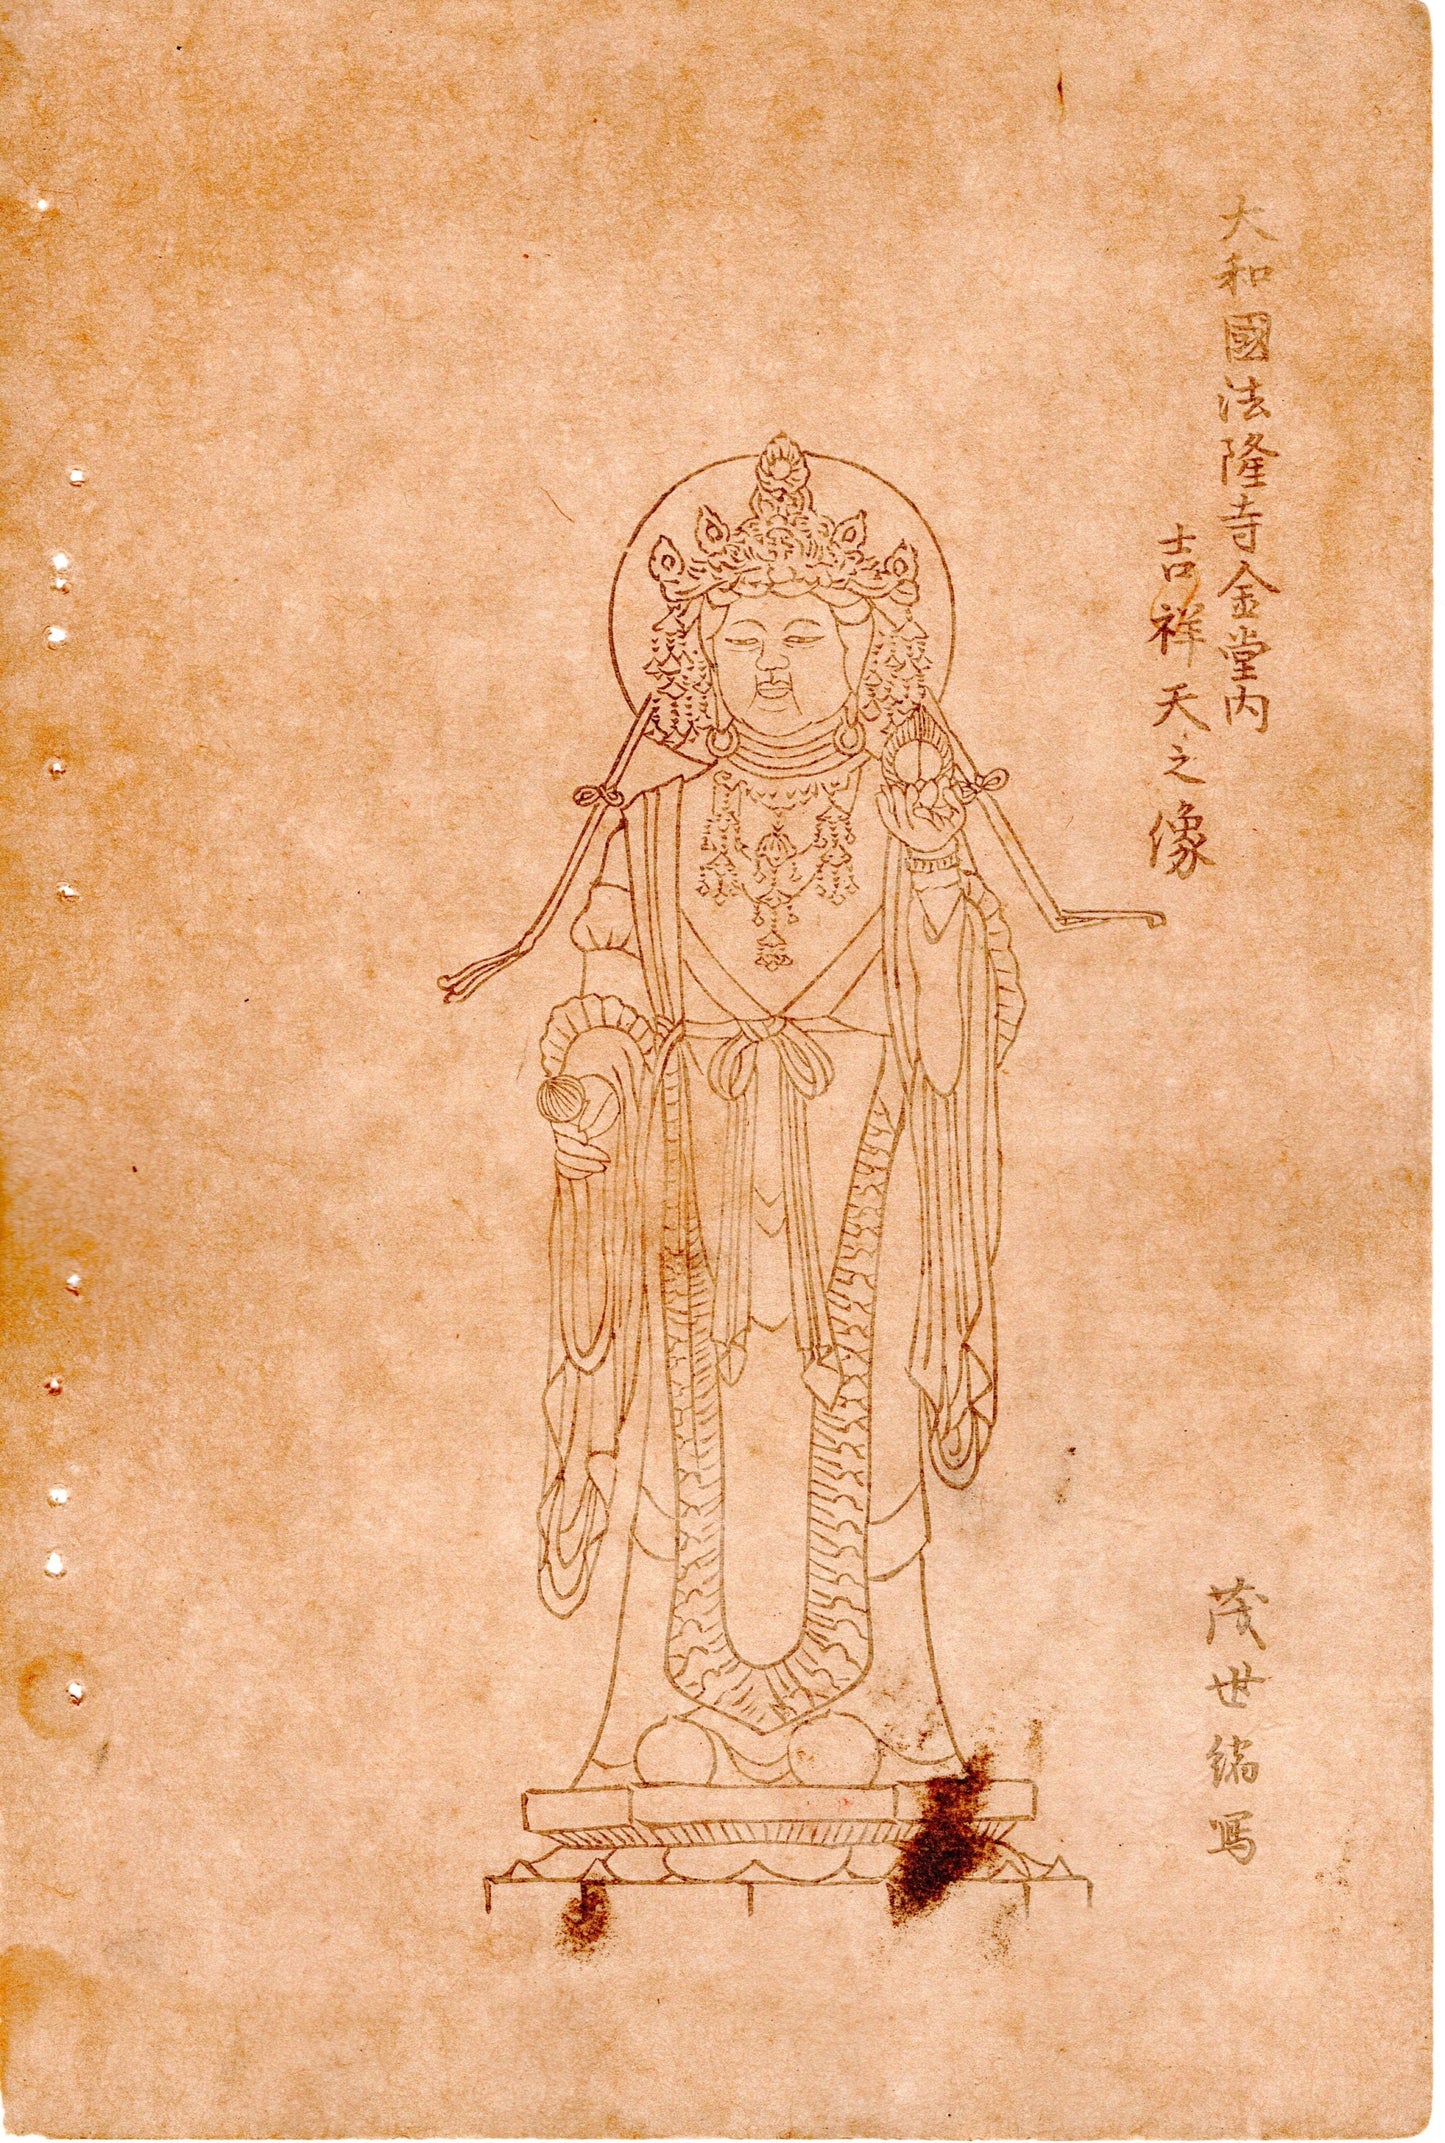 大和國法隆寺金堂内
吉祥天之像
茂世縮写